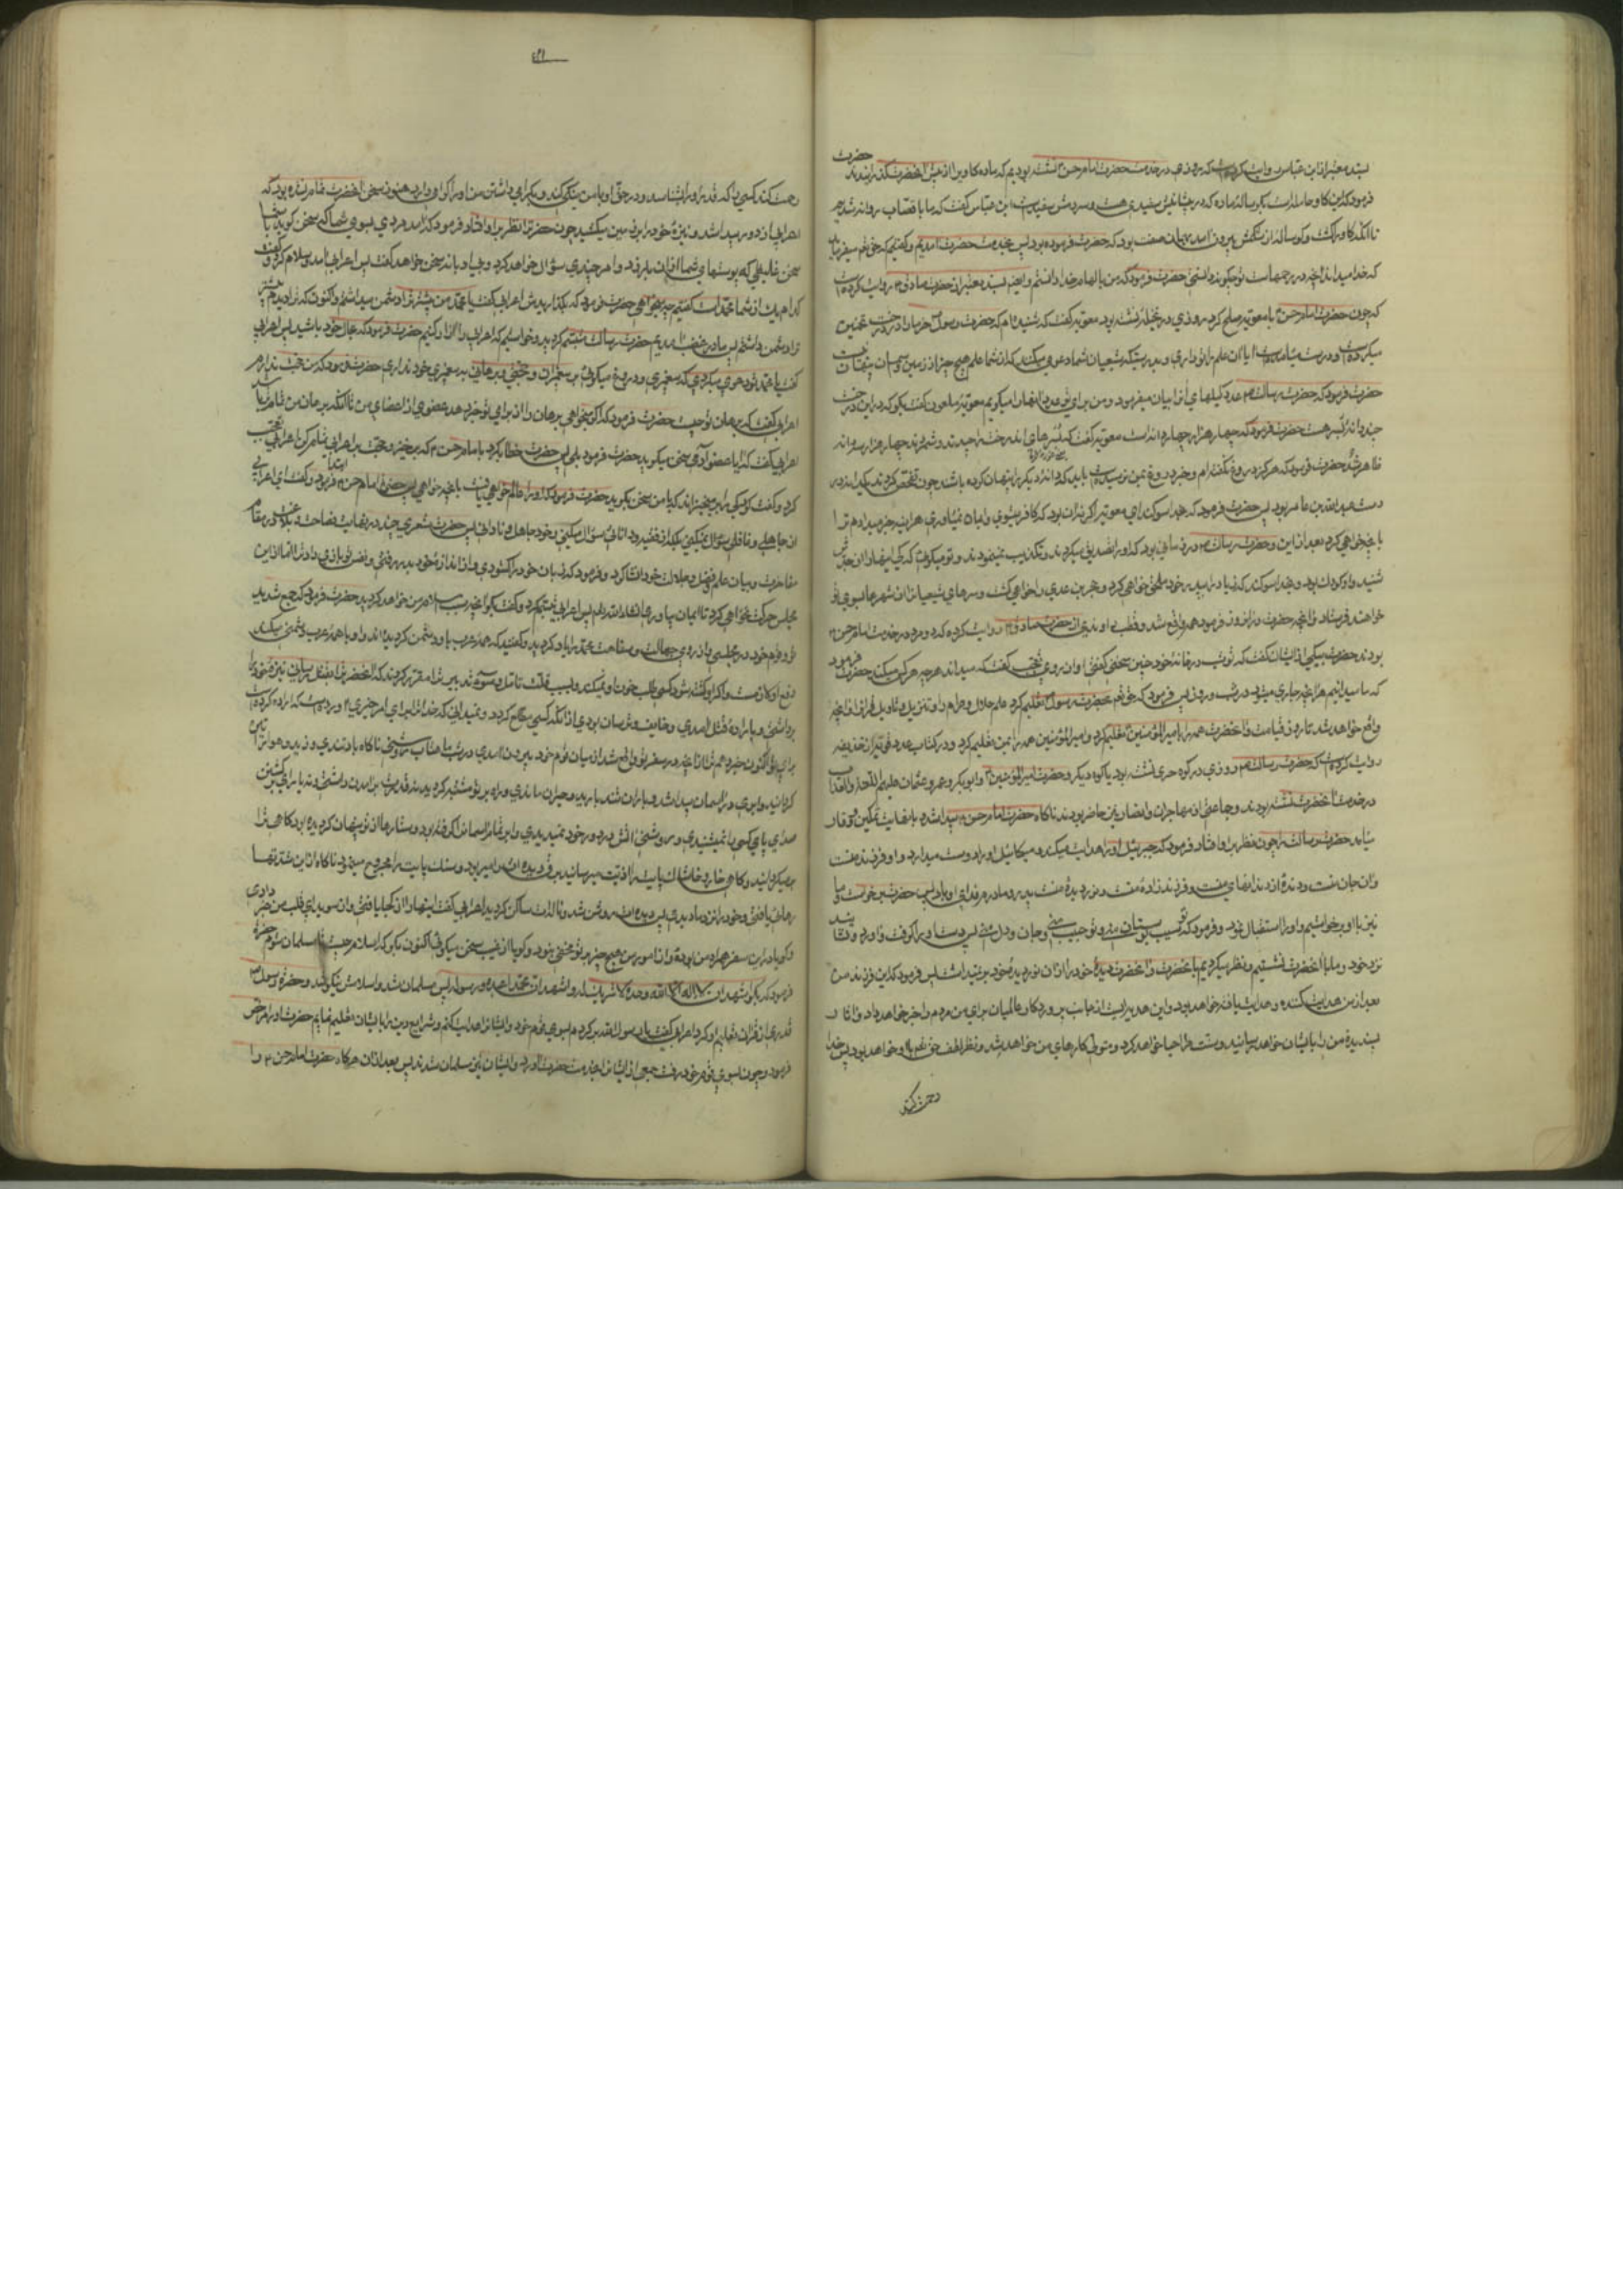 بسند معتبر از ابن عباس روایت کرده است که روزی در خدمت حضرت امام حسن ع نشسته بودیم که ماده کاویرا از پیش آنحضرت گذرانیدند حضرت
فرمود که این کاو حامله است بکوساله ماده که در پیشانیش سفیدی هست و سر دمش سفید است ابن عباس گفت که ما با قصاب روانه شدیم
تا آنکه کاو را کشت و کوساله از شکمش بیرون آمد بهمان صفت بود که حضرت فرموده بود پس بخدمت حضرت آمدیم و گفتیم که حق تعالی میفرماید
که خدا میداند آنچه در رحمهاست تو چگونه دانستی حضرت فرمود که من بالهام خدا دانستم و ایضا بسند معتبر از حضرت صادق ع روایت کرده است
که چون حضرت امام حسن ع با معویه صلح کرد روزی در نخیله نشسته بود معویه گفت که شنیده ام که حضرت رسول ص خرما را در درخت تخمین
میکرده است و درست میآمده است آیا آن علم را تو داری و بدرستیکه شیعیان شما دعوی میکنند که از شما علم هیچ چیز از زمین و آسمان پنهان نیست
حضرت فرمود که حضرت رسالت ص عدد کیلهای آنرا بیان میفرمود و من برای تو عدد دانهای آنرا میگویم معویه ملعون گفت بگو که در این درخت
چند دانه بسر هست حضرت فرمود که چهار هزار و چهار دانه است معویه گفت که بسرهای آن درخت را چیدند و شمردند چهار هزار و سه دانه
ظاهر شد حضرت فرمود که هرگز دروغ نگفته ام و خبر دروغ بمن نرسیده است باید که دانه دیگر را پنهان کرده باشند چون تفحص کردند یکدانه در
دست عبدالله بن عامر بود پس حضرت فرمود که بخدا سوگند ای معویه اگر نه آن بود که کافر میشوی و ایمان نمیآوری هرآینه خبر میدادم ترا
بآنچه خواهی کرد بعد از این و حضرت رسالت ص در زمانی بود که او را تصدیق میکردند و تکذیب نمینمودند و تو میگوئی که کی اینها را از جدش
شنید و او کودک بود و بخدا سوگند که زیاد را بپدر خود ملحق خواهی کرد و حجر بن عدی را خواهی کشت و سرهای شیعیان را از شهرها بسوی تو
خواهند فرستاد و آنچه حضرت در آنروز فرمود همه واقع شد و قطب راوندی از حضرت صادق ع روایت کرده که دو مرد در خدمت امام حسن ع
بودند حضرت بیکی از ایشان گفت که تو شب در خانه خود چنین سخنی گفتی او از روی تعجب گفت که میداند هر چه هر کس میکند حضرت فرمود
که ما میدانیم هر آنچه جاری میشود در شب و روز پس فرمود که حق تعالی بحضرت رسول ص تعلیم کرد علم حلال و حرام را و تنزیل و تاویل قرآن را و آنچه
واقع خواهد شد تا روز قیامت و آنحضرت همه را بامیرالمؤمنین ع تعلیم کرد و امیرالمؤمنین همه را بمن تعلیم کرد و در کتاب عدد قویه از حذیفه
روایت کرده است که حضرت رسالت ص روزی در کوه حری نشسته بود یا کوه دیگر و حضرت امیرالمؤمنین ع و ابوبکر و عمر و عثمان علیهم اللعنة والعذاب
در خدمت آنحضرت نشسته بودند و جماعتی از مهاجران و انصار نیز حاضر بودند ناگاه حضرت امام حسن ع پیدا شد و با نهایت تمکین و وقار
میآمد حضرت رسالت را چون نظر بر او افتاد فرمود که جبرئیل او را هدایت میکند و میکائیل او را دوست میدارد و او فرزند منست
و از جان منست و دنده از دندهای منست و فرزند زاده منست و نور دیده منست پدر و مادرم فدای او باد پس حضرت برخواست و ما
نیز با او برخواستیم و او را استقبال نمود و فرمود که تو سیب بوستان منی و تو حبیب منی و جان و دل منی پس دستش را گرفت و آورد و نشانید
نزد خود و ما با آنحضرت نشستیم و نظر میکردیم بآنحضرت و آنحضرت دیده خود را از آن نور دیده خود بر نمیداشت پس فرمود که این فرزند من
بعد از من هدایت کننده و هدایت یافته خواهد بود و این هدیه ایست از جانب پروردگار عالمیان برای من مردم را خبر خواهد داد و آثار
پسندیده من را بایشان خواهد رسانید و سنت مرا احیا خواهد کرد و متولی کارهای من خواهد شد و نظر لطف حق تعالی با او خواهد بود پس خدا
رحمت کند
٤٢١
رحمت کند کسی را که قدر او را بشناسد و در حق او با من نیکی کند و برای گرامی داشتن من او را گرامی دارد هنوز سخن آنحضرت تمام نشده بود که
اعرابی از دور پیدا شد و نیزه خود را بر زمین میکشید چون حضرت را نظر بر او افتاد فرمود که آمد مردی بسوی شما که سخن گوید با شما
سخن غلیظی که پوستهای شما از آن بلرزد و امر چندی سؤال خواهد کرد و بی ادبانه سخن خواهد گفت پس اعرابی آمد و سلام نکرد و گفت
کدام یک از شما محمد است گفتیم چه میخواهی حضرت فرمود که بگذارید پس اعرابی گفت یا محمد من پیشتر ترا دشمن میداشتم و اکنون که ترا دیدم بیشتر
ترا دشمن داشتم پس ما در غضب آمدیم حضرت رسالت تبسم کرد و خواستیم که اعرابی را آزار کنیم حضرت فرمود که بحال خود باشید پس اعرابی
گفت یا محمد تو دعوی میکردی که پیغمبری و دروغ میگوئی بر پیغمبران و حجتی و برهانی بر پیغمبری خود نداری حضرت فرمود که من حجت ندارم
اعرابی گفت که برهان تو چیست حضرت فرمود که اگر میخواهی برهان را از برای تو خبر دهد عضوی از اعضای من تا آنکه برهان من تمامتر باشد
اعرابی گفت که آیا عضو آدمی سخن میگوید حضرت فرمود بلی پس حضرت خطاب کرد با امام حسن ع که برخیز و حجت بر اعرابی تمام کن اعرابی تعجب
کرد و گفت کودکی را بر میخیزاند که با من سخن بگوید حضرت فرمود که او را عالم خواهی یافت بآنچه خواهی پس حضرت امام حسن ع ابتدا فرمود و گفت ای اعرابی
از جاهلی و غافلی سؤال نمیکنی بلکه از فقیه و دانائی سؤال میکنی و خود جاهل و نادانی پس حضرت شعری چند در نهایت فصاحت و بلاغت در مقام
مفاخرت و بیان علم و فضل و جلالت خود انشا کرد و فرمود که زبان خود را گشودی و از اندازه خود بدر رفتی و نفس تو بازی داد ترا اما از این
مجلس حرکت نخواهی کرد تا ایمان بیاوری انشاءالله تعالی پس اعرابی تبسم کرد و گفت بگو آنچه سبب اسلام من خواهد گردید حضرت فرمود که جمع شدید
تو و قوم خود در مجلسی و از روی جهالت و سفاهت محمد را یاد کردید و گفتید که همه عرب با او دشمن گردیده اند و او با همه عرب دشمنی میکند
دفع او لازمست و اگر او کشته شود کسی طلب خون او نمیکند و بسبب قلت تامل و سوء تدبیر ترا مقرر کردند که آنحضرت را بقتل رسانی نیزه خود را
برداشتی و باراده قتل آمدی و خایف و ترسان بودی از آنکه کسی مطلع گردد و نمیدانی که خدا ترا برای امر خیری آورده است که اراده کرده است
برای تو اکنون خبر دهم ترا از آنچه در سفر تو واقع شد از میان قوم خود بیرون آمدی در شب ماهتاب روشنی ناگاه باد تندی وزید و هوا تیره
گردانید و ابری در آسمان پیدا شد و باران شدید بارید و حیران ماندی و راه بر تو مشتبه گردید نه قدرت بر آمدن داشتی و نه یارای برگشتن
صدای پای کسی را نمیشنیدی و روشنی آتش در دور خود نمیدیدی و ابر تمام آسمان را گرفته بود و ستارها از تو پنهان گردیده بود گاهی باد ترا
میگردانید و گاهی خار و خاشاک پایت را اذیت میرسانید برق دیده ات را میربود و سنگ پایت را مجروح مینمود ناگاه از این شدتها
رهائی یافتی و خود را نزد ما دیدی پس دیده ات روشن شد و ناله ات ساکن گردید اعرابی گفت اینها را از کجا یافتی و از سویدای قلب من خبر دادی
و گویا در این سفر همراه من بوده و از امور من هیچ چیز بر تو مخفی نبود و گویا از غیب سخن میگوئی اکنون بگو که اسلام چیست تا مسلمان شوم حضرت
فرمود که بگو اشهد ان لا اله الا الله وحده لا شریک له و اشهد ان محمدا عبده و رسوله پس مسلمان شد و اسلامش نیکو شد و حضرت رسول ص
قدری از قرآن تعلیم او کرد اعرابی گفت یا رسول الله بر گردم بسوی قوم خود و ایشان را هدایت کنم و شرایع دین را بایشان تعلیم نمایم حضرت او را مرخص
فرمود و چون بسوی قوم خود رفت جمعی از ایشان را بخدمت حضرت آورد و ایشان نیز مسلمان شدند پس بعد از آن هرگاه حضرت امام حسن ع را